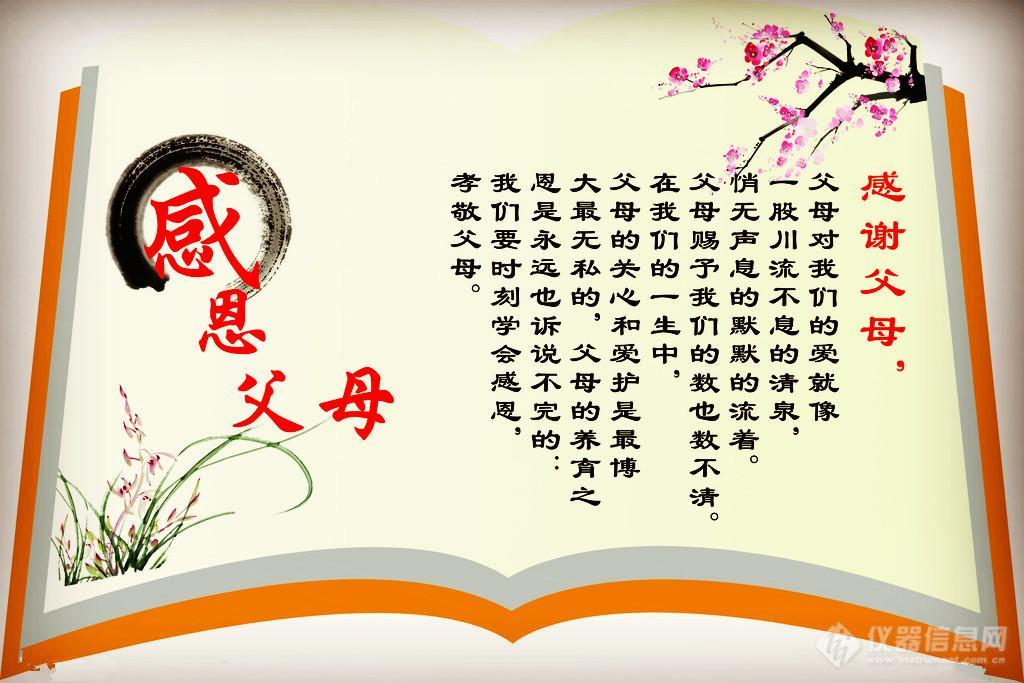 感恩父母
感谢父母，
父母对我们的爱就像
一股川流不息的清泉，
悄无声息的默默的流着。
父母赐予我们的数也数不清。
在我们的一生中，
父母的关心和爱护是最博
大最无私的，父母的养育之
恩是永远也诉说不完的：
我们要时刻学会感恩，
孝敬父母。
仪器信息网
www.instrument.com.cn